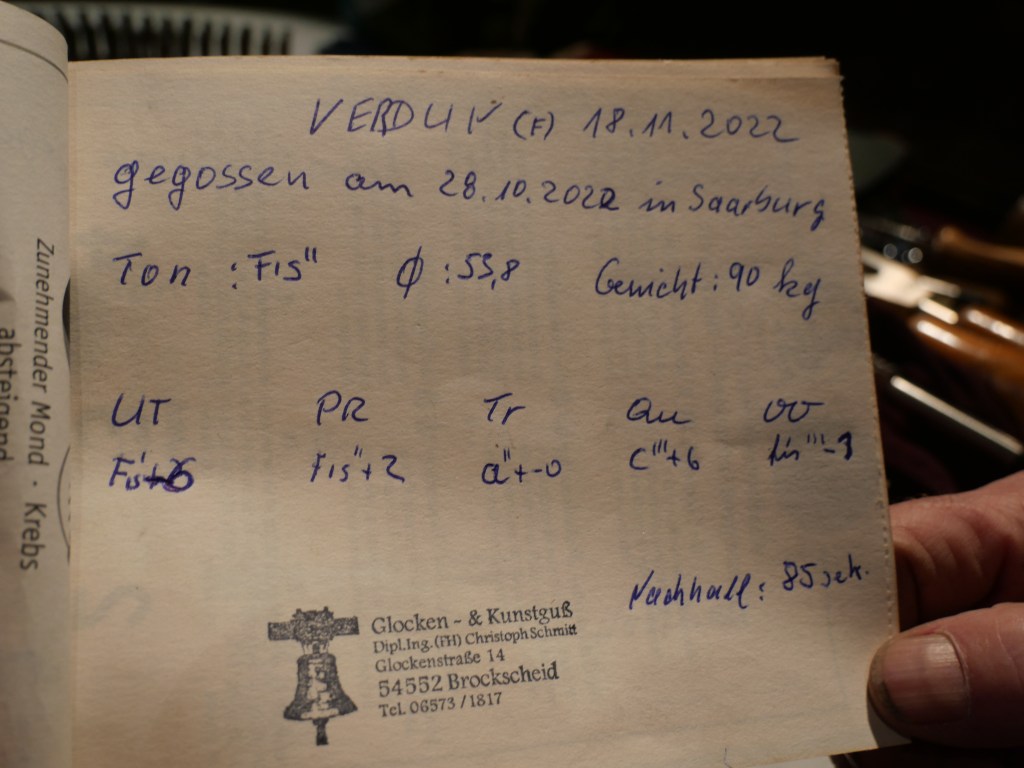 VERDUN (F) 18.11.2022
gegossen am 28.10.2022 in Saarburg
Ton : Fis" Ø : 55,8 Gewicht : 90 kg
UT PR Tr Qu OO
Fis'+6 Fis"+2 a"+-0 c'''+6 fis'''-1
Nachhall : 85 sek.
Glocken - & Kunstguß
Dipl.Ing.(FH) Christoph Schmitt
Glockenstraße 14
54552 Brockscheid
Tel. 06573 / 1817
Zunehmender Mond · Krebs
absteigend